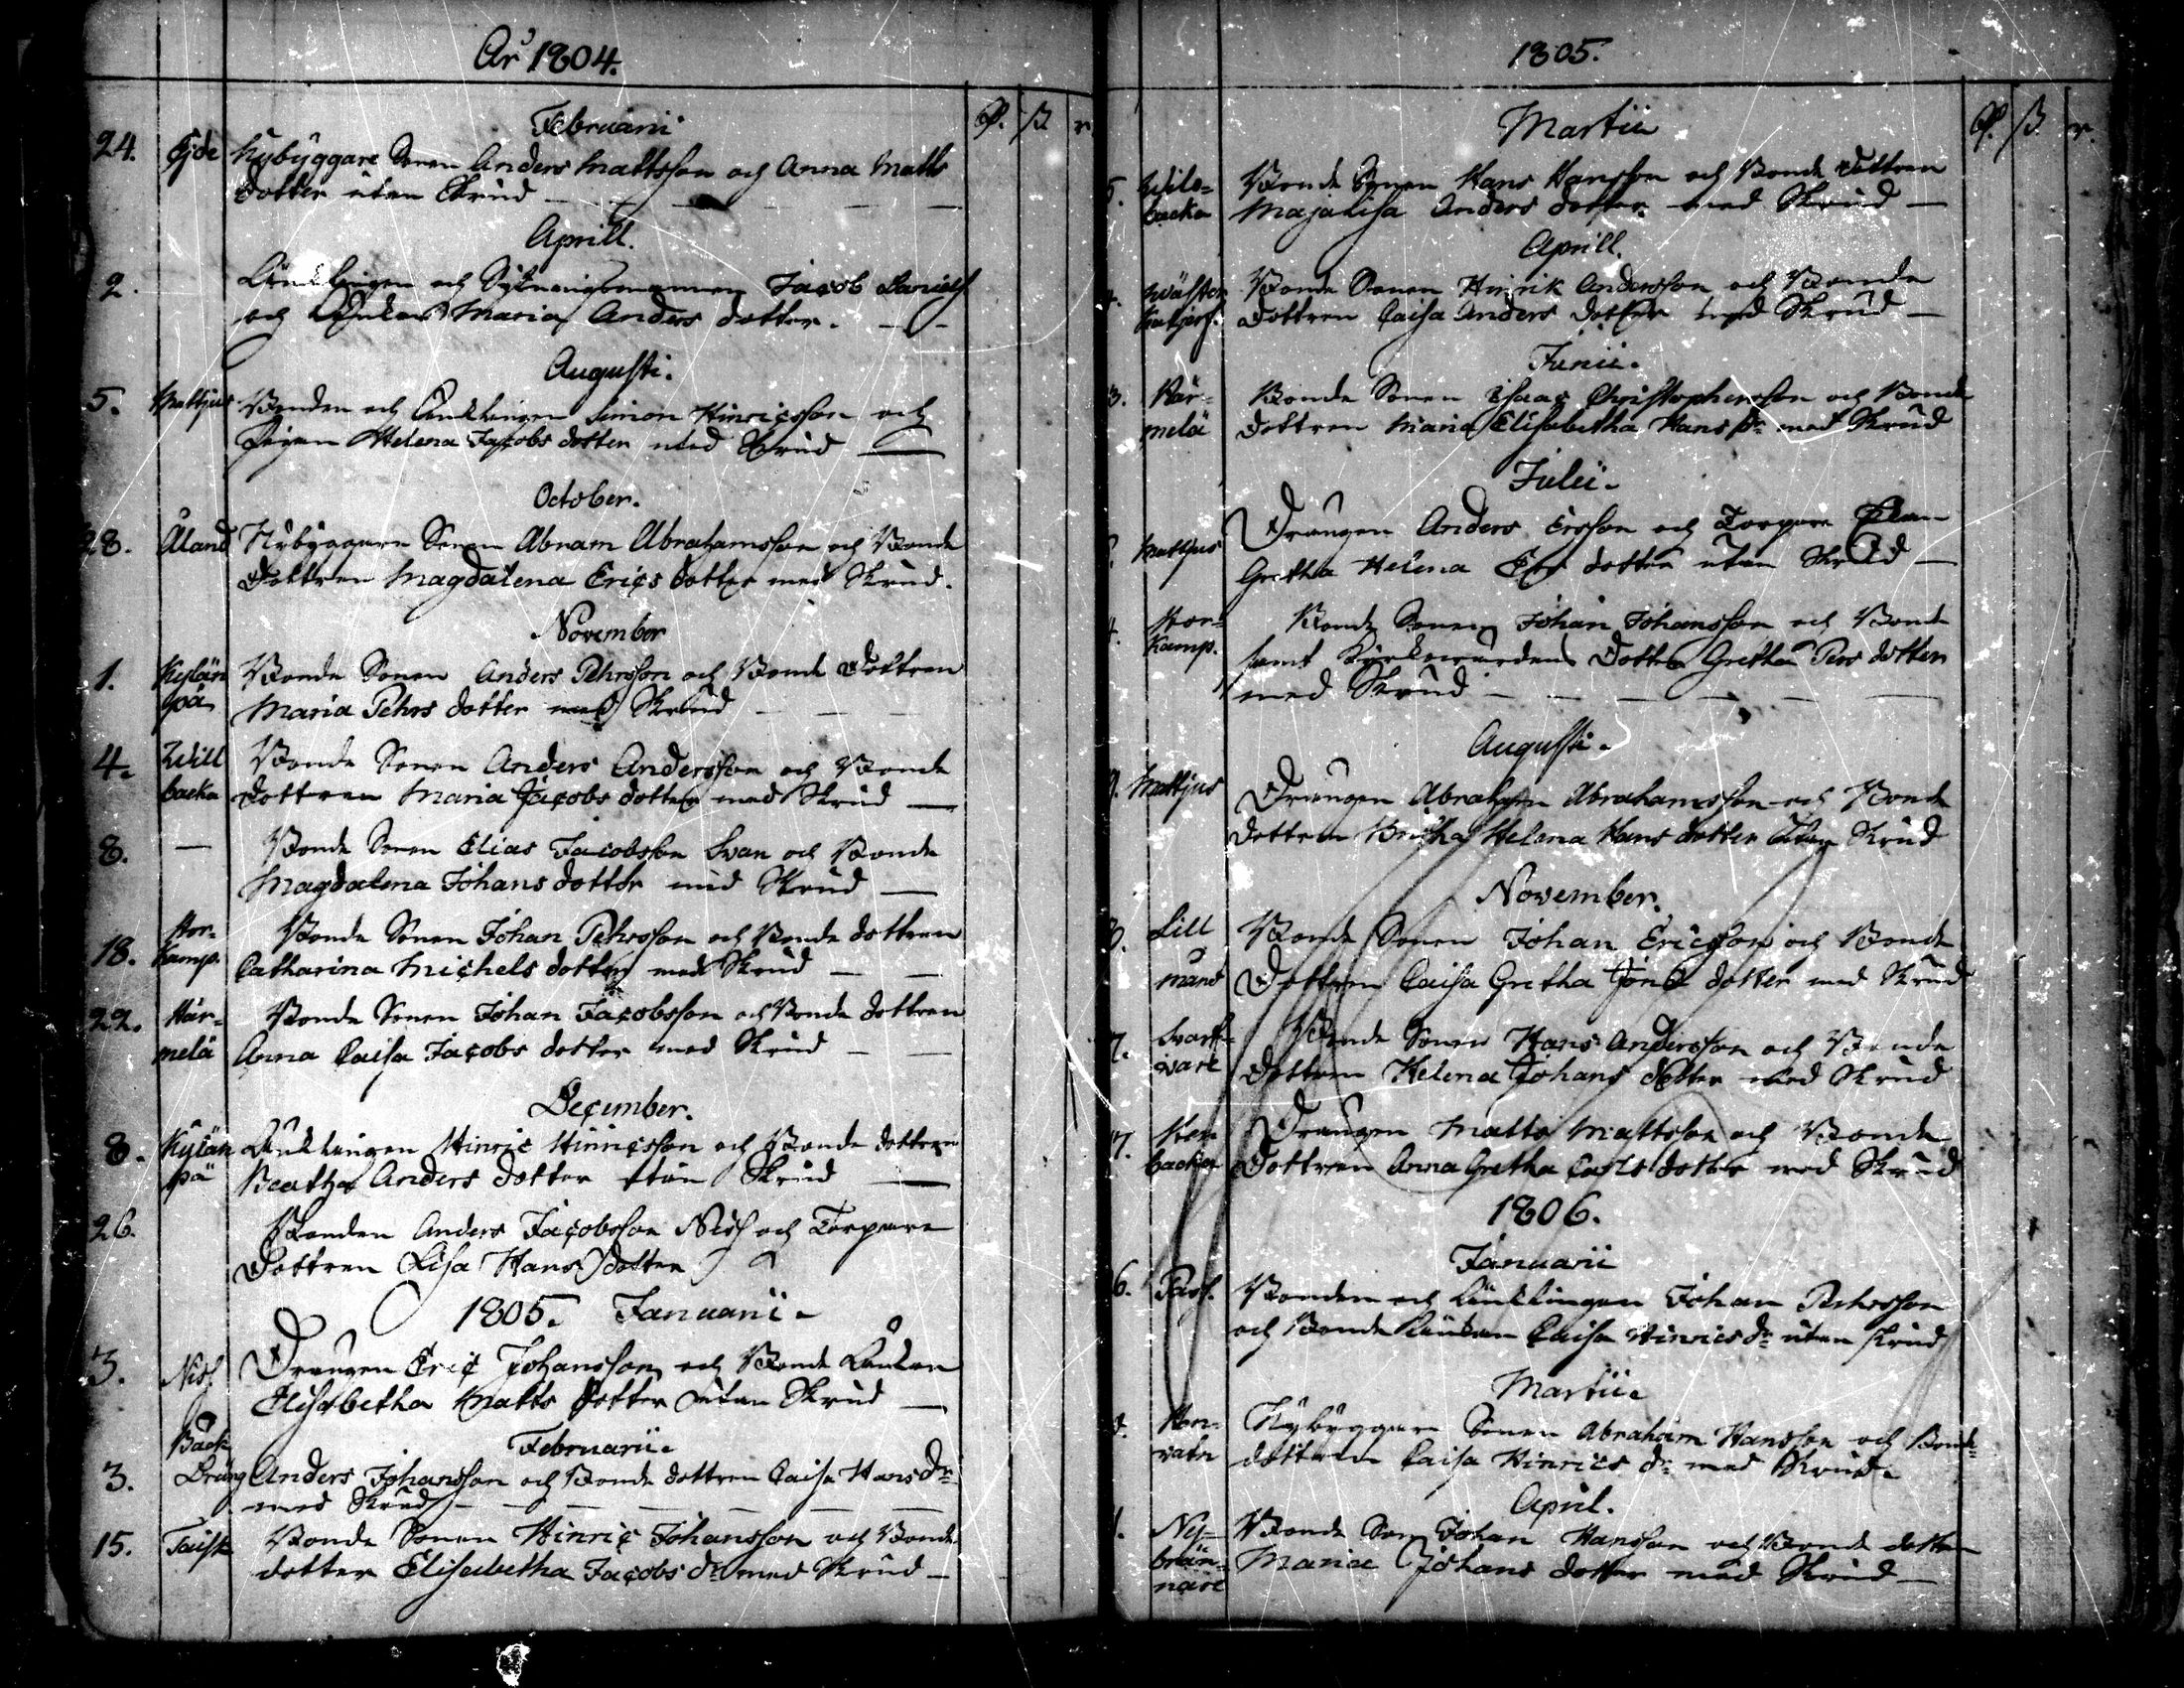 År 1804.
Februarii
24. Ejde Nybyggare Sonen Anders Mattsson och Anna Matts
dotter utan Skrud
Aprill.
2. Änklingen och Jacob Daniels
och Änkan Maria Anders dotter.
Augusti.
5. Mattjus Bonden och Änklingen Simon Hinricsson och
Pigan Helena Jacobs dotter med Skrud
October.
28. Åland Nybyggare Sonen Abram Abrahamsson och Bonde
Dottren Magdalena Erics dotter med Skrud.
November
1. Kylän Bonde Sonen Anders Pehrsson och Bonde Dottren
pä Maria Pehrs dotter med Skrud
4. Will Bonde Sonen Anders Andersson och Bonde
backa Dottren Maria Jacobs dotter med Skrud
8. — Bonde Sonen Elias Jacobsson Svan och Bonde
Magdalena Johans dotter med Skrud
18. Hor- Bonde Sonen Johan Pehrsson och Bonde dottren
Kamp. Catharina Michels dotter med Skrud
22. Här- Bonde Sonen Johan Jacobsson och Bonde dottren
melä Anna Caisa Jacobs dotter med Skrud
December.
8. Kylän Änklingen Hinric Hinricsson och Bonde dottren
pä Beatha Anders dotter utan Skrud
26. Bonden Anders Jacobsson Niss och Torpare
Dottren Lisa Hans dotter
1805. Januarii
3. Niss Drängen Eric Johansson och Bonde Änkan
Elisabetha Matts dotter utan Skrud
Back Februarii
3. Dräng Anders Johansson och Bonde dottren Caisa Hans dr
med Skrud
15. Taisk Bonde Sonen Hinric Johansson och Bonde
dotter Elisabetha Jacobs dr med Skrud
1805.
Martii
5. Wils- Bonde Sonen Hans Hansson och Bonde dottren
backa Maja Lisa Anders dotter med Skrud
Aprill.
4. Bonde Sonen Hinrik Andersson och Bonde
dottren Caisa Anders dotter med Skrud
Junii.
3. Här- Bonde Sonen Isaac Christophersson och Bonde
melä dottren Maria Elisabetha Hans dr med Skrud
Julii.
Mattjus Drängen Anders Ersson och Torpare
Gretha Helena Ers dotter utan Skrud
4. Hor- Bonde Sonen Johan Johansson och Bonde
Kamp. samt Kyrkovärdens Dotter Gretha Pers dotter
med Skrud
Augusti.
Mattjus Drängen Abraham Abrahamsson och Bonde
dottren Britha Helena Hans dotter utan Skrud
November.
Lill Bonde Sonen Johan Ericsson och Bonde
månd Dottren Caisa Gretha Jons dotter med Skrud
7. Svart- Bonde Sonen Hans Andersson och Bonde
Dottren Helena Johans dotter med Skrud
17. Drängen Matts Mattsson och Bonde
backa Dottren Anna Gretha Carls dotter med Skrud
1806.
Januarii
6. Pass. Bonden och Änklingen Johan Pehrsson
och Bonde Änkan Caisa Hinrics dr utan Skrud
Martii
Nybyggare Sonen Abraham Hansson och Bonde-
dottren Caisa Hinrics dr med Skrud
April.
Ny- Bonde Son Johan Hansson och Bonde dotter
Maria Johans dotter med Skrud